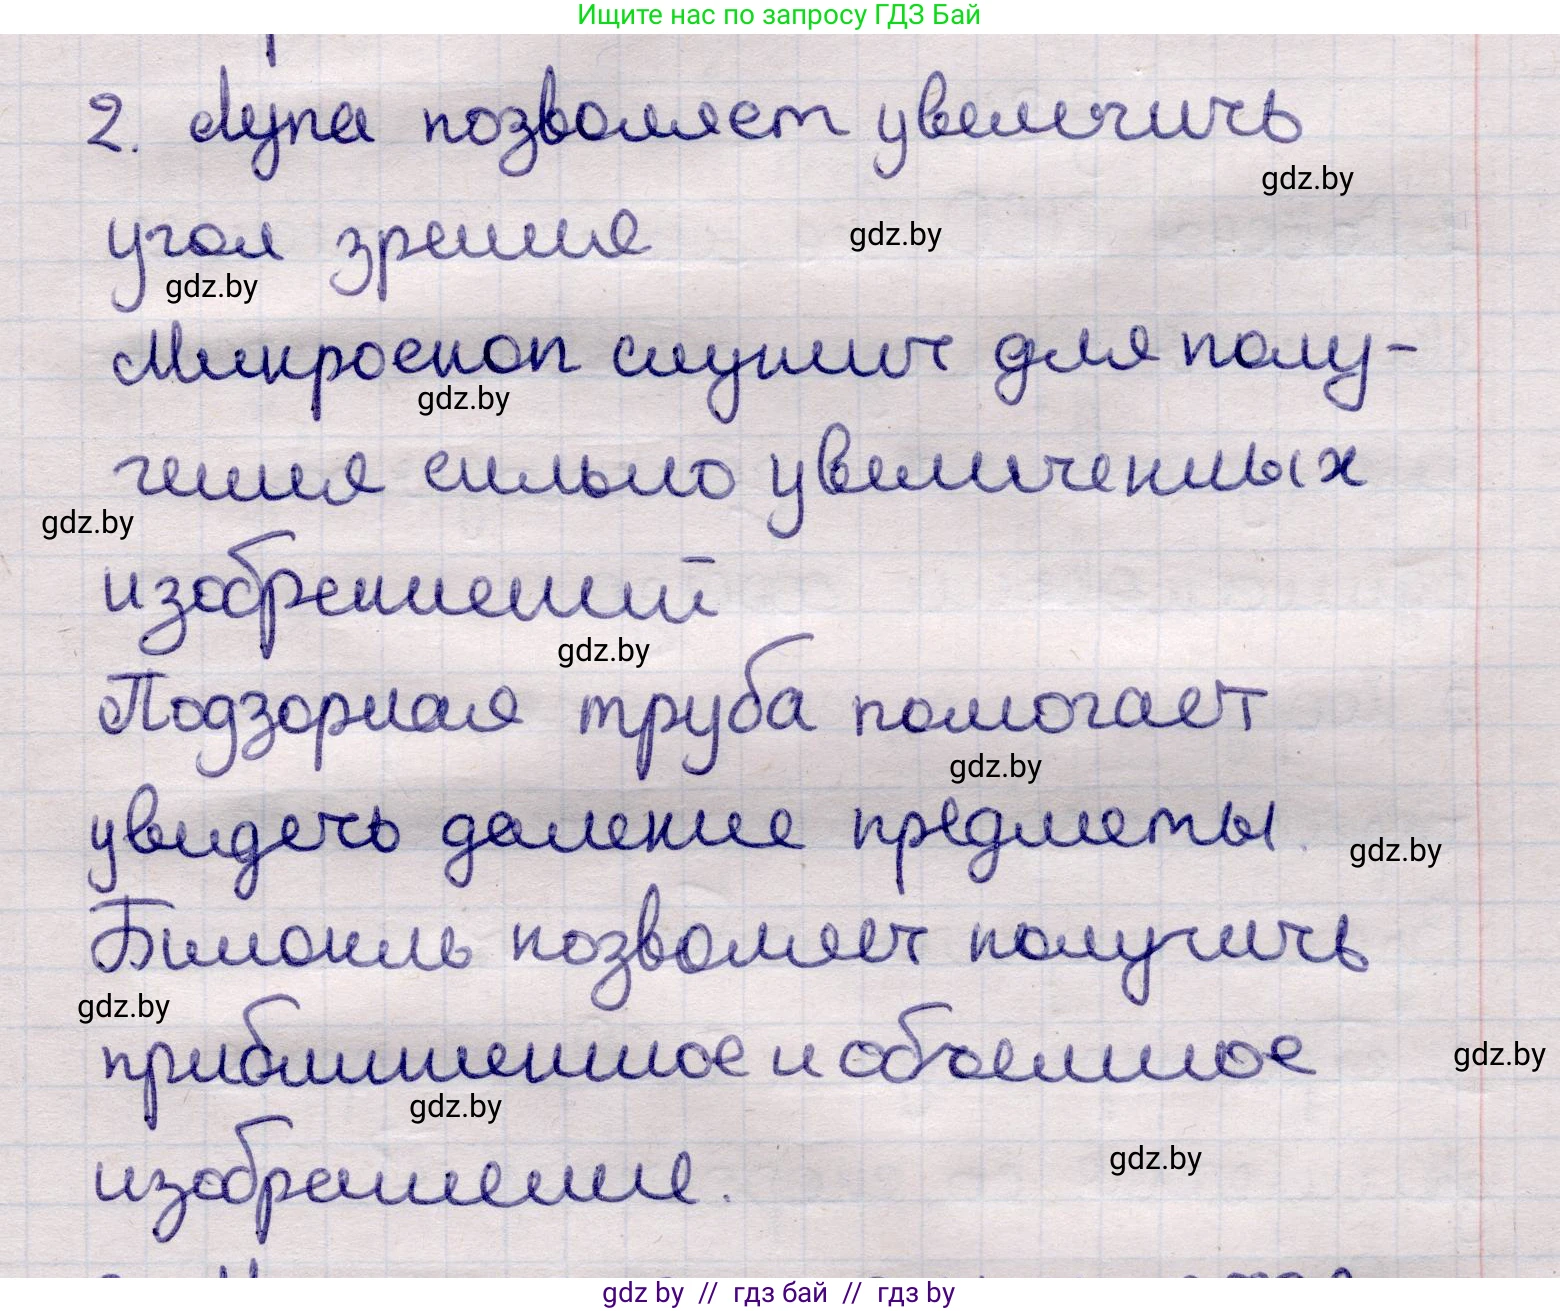 Ищите нас по запросу ГДЗ Бай
2. Лупа позволяет увеличить
gdz.by
угол зрения
gdz.by
gdz.by
Микроскоп служит для полу-
gdz.by
чения сильно увеличенных
gdz.by
изображений
gdz.by
Подзорная труба помогает
gdz.by
увидеть далекие предметы.
gdz.by
Бинокль позволяет получить
gdz.by
приближенное и объемное
gdz.by
gdz.by
gdz.by
изображение.
gdz by // гдз бай // гдз by